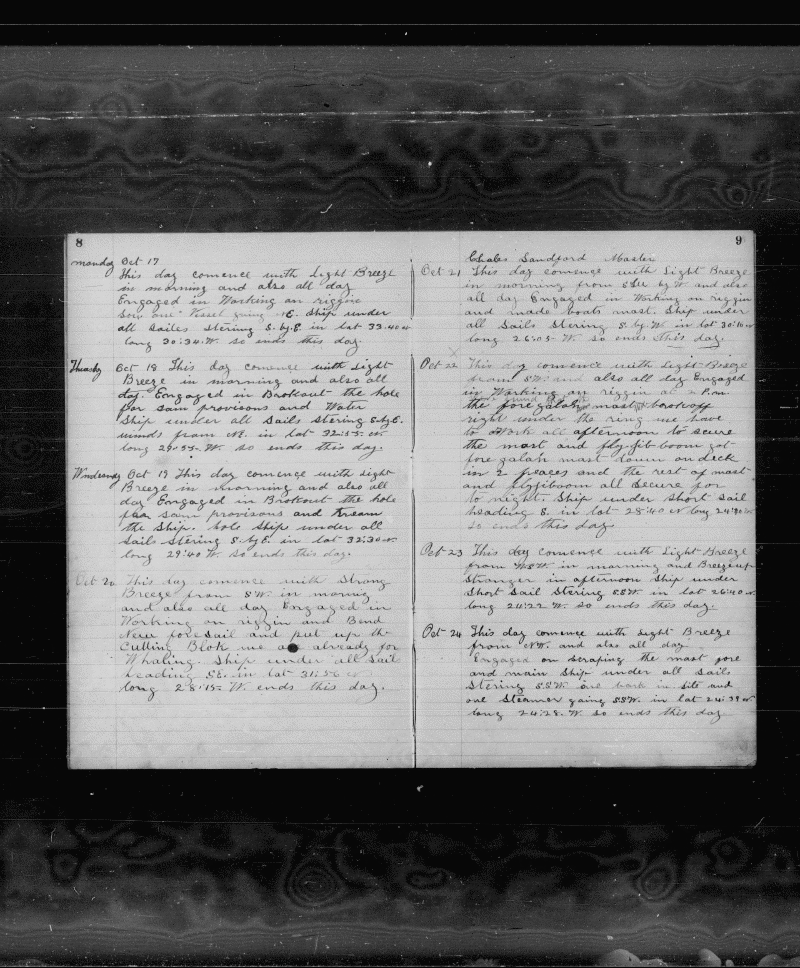 8
monday Oct 17
This day comence with Light Breeze
in morning and also all day
Engaged in Working on riggin
Sow one Vessel going NE. Ship under
all Sailes Stering S. by E. in lat 33.40 N
long 30:34 W. so ends this day.
Thuesday Oct 18 This day comence with Light
Breeze in morning and also all
day. Engaged in Brokout the hole
for sam provisons and Water
Ship under all Sails Stering S by E.
winds from NE. in lat 32:55 N.
long 29:55 W. so ends this day.
Wendnesday Oct 19 This day comence with Light
Breeze in morning and also all
day Engaged in Brokout the hole
for sam provisons and
the Ship. hole Ship under all
Sails Stering S. by E. in lat 32:30 N.
long 29:40 W. so ends this day.
Oct 20 This day comence with Strong
Breeze from SW. in morning
and also all day Engaged in
Working on riggin and Bend
New foresail and put up the
Cutting Blok we are already for
Whaling. Ship under all Sail
heading SE. in lat 31:56 N
long 28:15 W. ends this day.
9
Chales Sandford Master
Oct 21 This day comence with Light Breeze
in morning from SW by W and also
all day Engaged in Working on riggin
and made boats mast. Ship under
all Sails Stering S. by W. in lat 30:10 N
long 26:05 W. so ends this day.
Oct 22 This day comence with Light Breeze
from SW. and also all day Engaged
in Working on riggin at 2 P.m.
the fore galah mast brookoff
right under the ring we have
to Work all afternoon to secure
the mast and fly-jib-boom got
fore galah mast down on deck
in 2 peaces and the rest of mast
and flyjiboom all Secure for
to night. Ship under Short Sail
heading S. in lat 28:40 N long 24:40 W
so ends this day
Oct 23 This day comence with Light Breeze
from WSW. in morning and Breezeup
Stronger in afternoon Ship under
Short Sail Stering SSW. in lat 26:40 N.
long 24:22 W. so ends this day.
Oct 24 This day comence with Light Breeze
from NW. and also all day
Engaged on scraping the mast fore
and main Ship under all Sails
Stering SSW. one bark in Site and
one Steamer going SSW. in lat 24:39 N
long 24:28 W. so ends this day